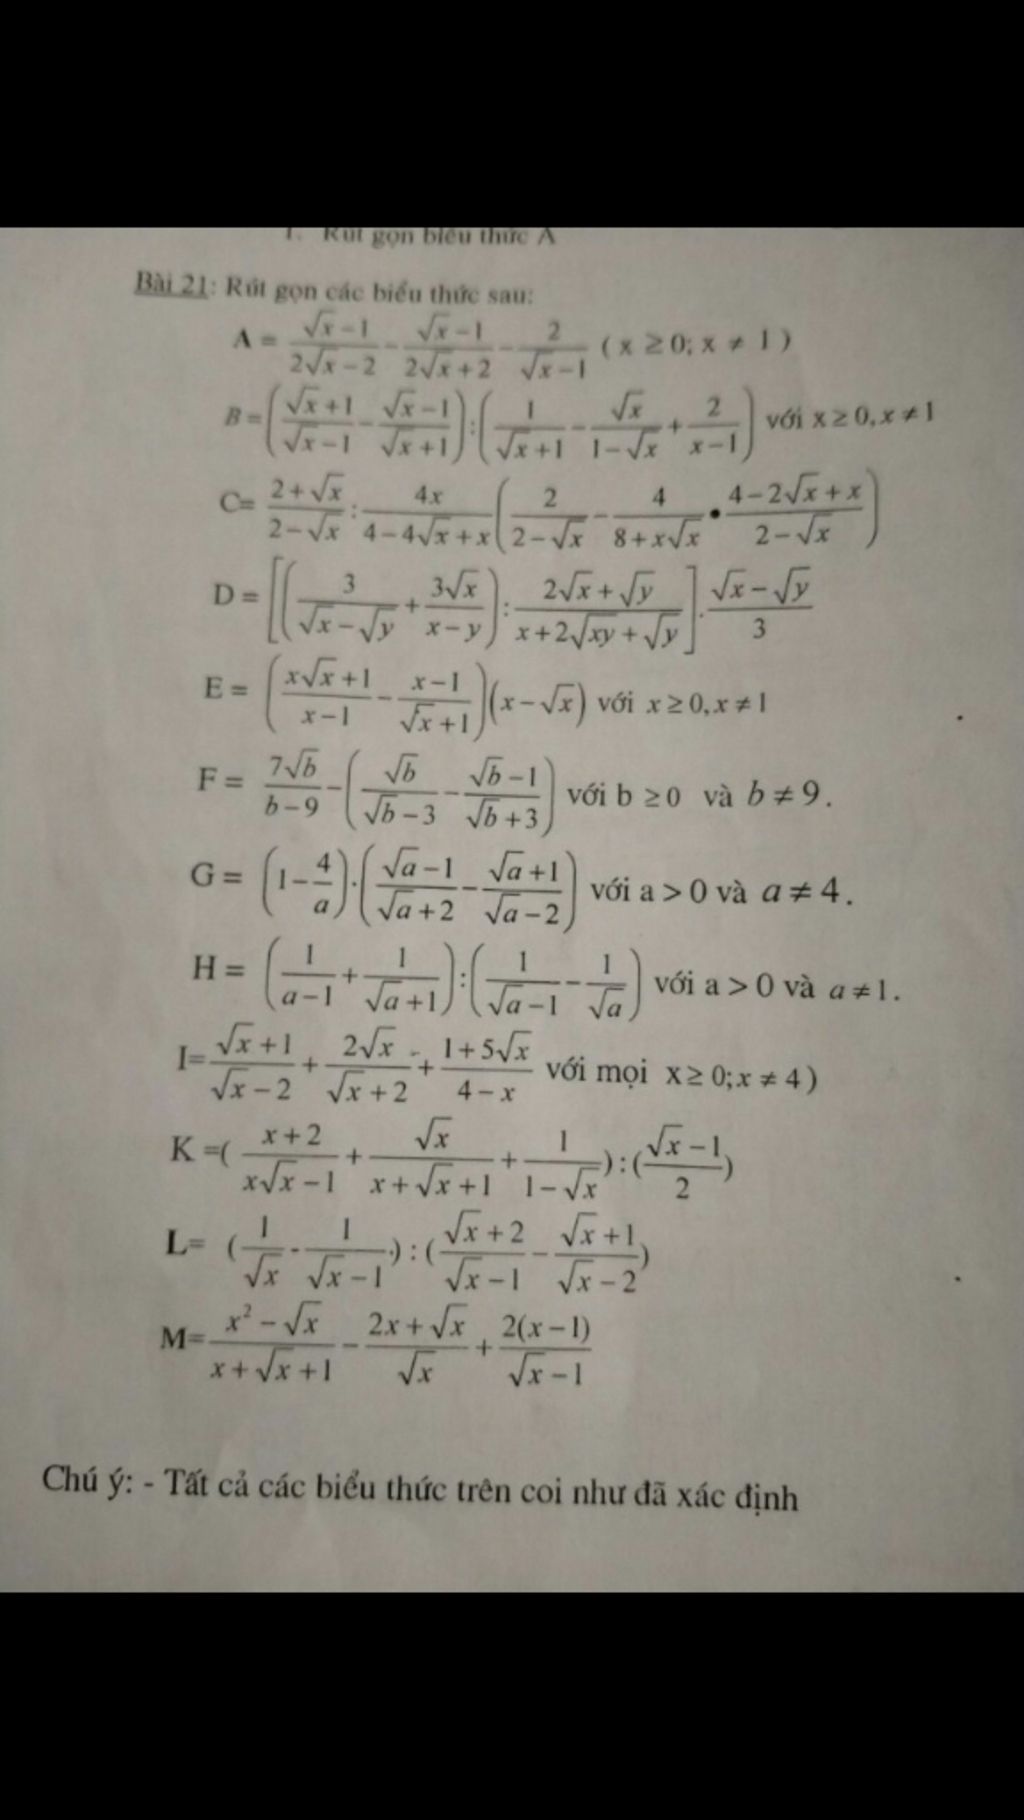 1. Rút gọn biểu thức A
Bài 21: Rút gọn các biểu thức sau:
A = \frac{\sqrt{x}-1}{2\sqrt{x}-2} - \frac{\sqrt{x}-1}{2\sqrt{x}+2} - \frac{2}{\sqrt{x}-1} ( x ≥ 0; x ≠ 1 )
B = \left(\frac{\sqrt{x}+1}{\sqrt{x}-1} - \frac{\sqrt{x}-1}{\sqrt{x}+1}\right) : \left(\frac{1}{\sqrt{x}+1} - \frac{\sqrt{x}}{1-\sqrt{x}} + \frac{2}{x-1}\right) với x ≥ 0, x ≠ 1
C= \frac{2+\sqrt{x}}{2-\sqrt{x}} : \frac{4x}{4-4\sqrt{x}+x} \left(\frac{2}{2-\sqrt{x}} - \frac{4}{8+x\sqrt{x}} • \frac{4-2\sqrt{x}+x}{2-\sqrt{x}}\right)
D = \left[\left(\frac{3}{\sqrt{x}-\sqrt{y}} + \frac{3\sqrt{x}}{x-y}\right) : \frac{2\sqrt{x}+\sqrt{y}}{x+2\sqrt{xy}+\sqrt{y}}\right] . \frac{\sqrt{x}-\sqrt{y}}{3}
E = \left(\frac{x\sqrt{x}+1}{x-1} - \frac{x-1}{\sqrt{x}+1}\right)(x-\sqrt{x}) với x ≥ 0, x ≠ 1
F = \frac{7\sqrt{b}}{b-9} - \left(\frac{\sqrt{b}}{\sqrt{b}-3} - \frac{\sqrt{b}-1}{\sqrt{b}+3}\right) với b ≥ 0 và b ≠ 9.
G = \left(1-\frac{4}{a}\right).\left(\frac{\sqrt{a}-1}{\sqrt{a}+2} - \frac{\sqrt{a}+1}{\sqrt{a}-2}\right) với a > 0 và a ≠ 4.
H = \left(\frac{1}{a-1} + \frac{1}{\sqrt{a}+1}\right) : \left(\frac{1}{\sqrt{a}-1} - \frac{1}{\sqrt{a}}\right) với a > 0 và a ≠ 1.
I= \frac{\sqrt{x}+1}{\sqrt{x}-2} + \frac{2\sqrt{x}}{\sqrt{x}+2} + \frac{1+5\sqrt{x}}{4-x} với mọi x ≥ 0; x ≠ 4)
K =( \frac{x+2}{x\sqrt{x}-1} + \frac{\sqrt{x}}{x+\sqrt{x}+1} + \frac{1}{1-\sqrt{x}} ) : ( \frac{\sqrt{x}-1}{2} )
L= ( \frac{1}{\sqrt{x}} - \frac{1}{\sqrt{x}-1} ) : ( \frac{\sqrt{x}+2}{\sqrt{x}-1} - \frac{\sqrt{x}+1}{\sqrt{x}-2} )
M= \frac{x^2-\sqrt{x}}{x+\sqrt{x}+1} - \frac{2x+\sqrt{x}}{\sqrt{x}} + \frac{2(x-1)}{\sqrt{x}-1}
Chú ý: - Tất cả các biểu thức trên coi như đã xác định